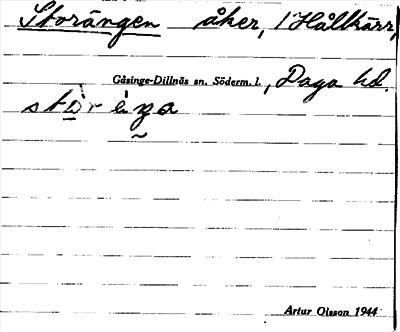 Storängen åker, 1 Hållkärr,
Gåsinge-Dillnäs sn. Söderm. l., Daga hd.
Artur Olsson 1944